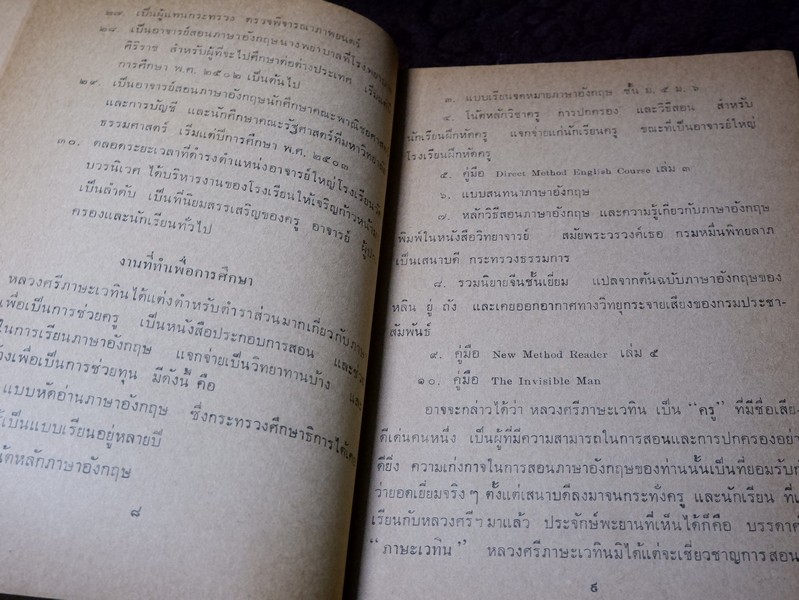 ๒๗. เป็นผู้แทนกระทรวง ตรวจพิจารณาภาพยนตร์
๒๘. เป็นอาจารย์สอนภาษาอังกฤษนางพยาบาลที่โรงพยาบาล
ศิริราช สำหรับผู้ที่จะไปศึกษาต่อต่างประเทศ เริ่มแต่
การศึกษา พ.ศ. ๒๕๐๒ เป็นต้นไป
๒๙. เป็นอาจารย์สอนภาษาอังกฤษนักศึกษาคณะพาณิชยศาสตร์
และการบัญชี และนักศึกษาคณะรัฐศาสตร์ที่มหาวิทยาลัย
ธรรมศาสตร์ เริ่มแต่ปีการศึกษา พ.ศ. ๒๕๐๓
๓๐. ตลอดระยะเวลาที่ดำรงตำแหน่งอาจารย์ใหญ่โรงเรียนวัด
บวรนิเวศ ได้บริหารงานของโรงเรียนให้เจริญก้าวหน้ามา
เป็นลำดับ เป็นที่นิยมสรรเสริญของครู อาจารย์ ผู้ปก
ครองและนักเรียนทั่วไป
งานที่ทำเพื่อการศึกษา
หลวงศรีภาษะเวทินได้แต่งตำหรับตำราส่วนมากเกี่ยวกับภาษา
เพื่อเป็นการช่วยครู เป็นหนังสือประกอบการสอน และช่วย
ในการเรียนภาษาอังกฤษ แจกจ่ายเป็นวิทยาทานบ้าง และ
างเพื่อเป็นการช่วยทุน มีดังนี้ คือ
แบบหัดอ่านภาษาอังกฤษ ซึ่งกระทรวงศึกษาธิการได้เคย
เป็นแบบเรียนอยู่หลายปี
หลักภาษาอังกฤษ
๘
๓. แบบเรียนจดหมายภาษาอังกฤษ ชั้น ม. ๕ ม. ๖
๔. โน้ตหลักวิชาครู การปกครอง และวิธีสอน สำหรับ
นักเรียนฝึกหัดครู แจกจ่ายแก่นักเรียนครู ขณะที่เป็นอาจารย์ใหญ่
โรงเรียนฝึกหัดครู
๕. คู่มือ Direct Method English Course เล่ม ๓
๖. แบบสนทนาภาษาอังกฤษ
๗. หลักวิธีสอนภาษาอังกฤษ และความรู้เกี่ยวกับภาษาอังกฤษ
พิมพ์ในหนังสือวิทยาจารย์ สมัยพระวรวงค์เธอ กรมหมื่นพิทยลาภ
เป็นเสนาบดี กระทรวงธรรมการ
๘. รวมนิยายจีนชั้นเยี่ยม แปลจากต้นฉบับภาษาอังกฤษของ
หลิน ยู่ ถัง และเคยออกอากาศทางวิทยุกระจายเสียงของกรมประชา-
สัมพันธ์
๙. คู่มือ New Method Reader เล่ม ๕
๑๐. คู่มือ The Invisible Man
อาจจะกล่าวได้ว่า หลวงศรีภาษะเวทิน เป็น “ครู” ที่มีชื่อเสีย
ดีเด่นคนหนึ่ง เป็นผู้ที่มีความสามารถในการสอนและการปกครองอย่า
ดียิ่ง ความเก่งกาจในการสอนภาษาอังกฤษของท่านนั้นเป็นที่ยอมรับก
ว่ายอดเยี่ยมจริง ๆ ตั้งแต่เสนาบดีลงมาจนกระทั่งครู และนักเรียน ที่เ
เรียนกับหลวงศรีฯ มาแล้ว ประจักษ์พะยานที่เห็นได้ก็คือ บรรดาค
“ภาษะเวทิน” หลวงศรีภาษะเวทินมิได้แต่จะเชี่ยวชาญการสอน
๙